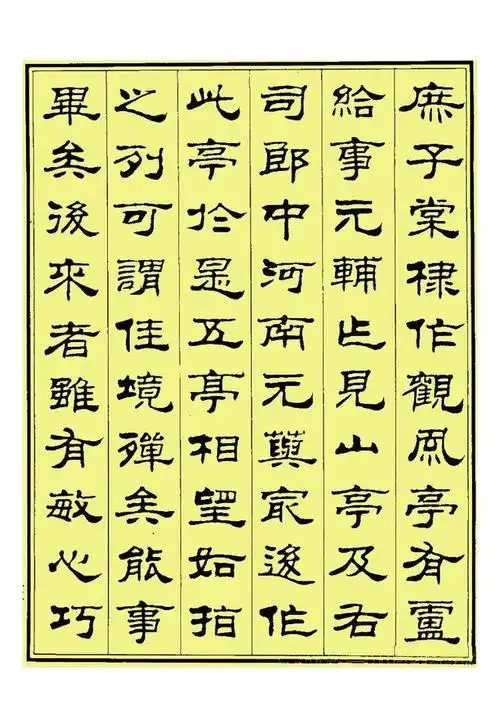 庶子棠棣作觀風亭有盧
給事元輔作見山亭及右
司郎中河南元藇冣後作
此亭於是五亭相望如指
之列可謂佳境殫矣能事
畢矣後來者雖有敏心巧